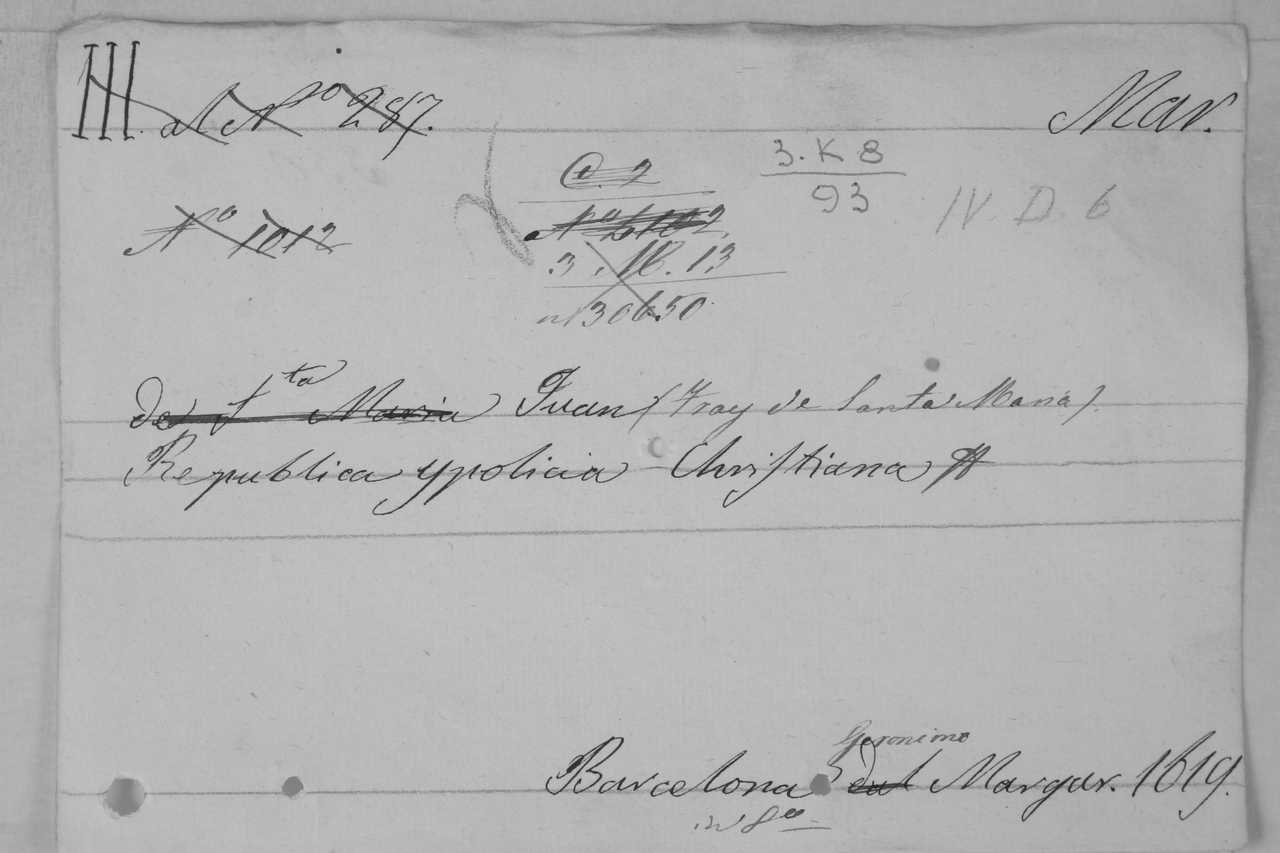 III. al Nº 287. Mar.
C. 2 3. K 8
Nº 1012 93 IV. D. 6
3. M. 13
30650
de Sta Maria Juan (Fray de Santa Maria)
Republica y policia Christiana
Geronimo
Barcelona Margar. 1619.
in 8º